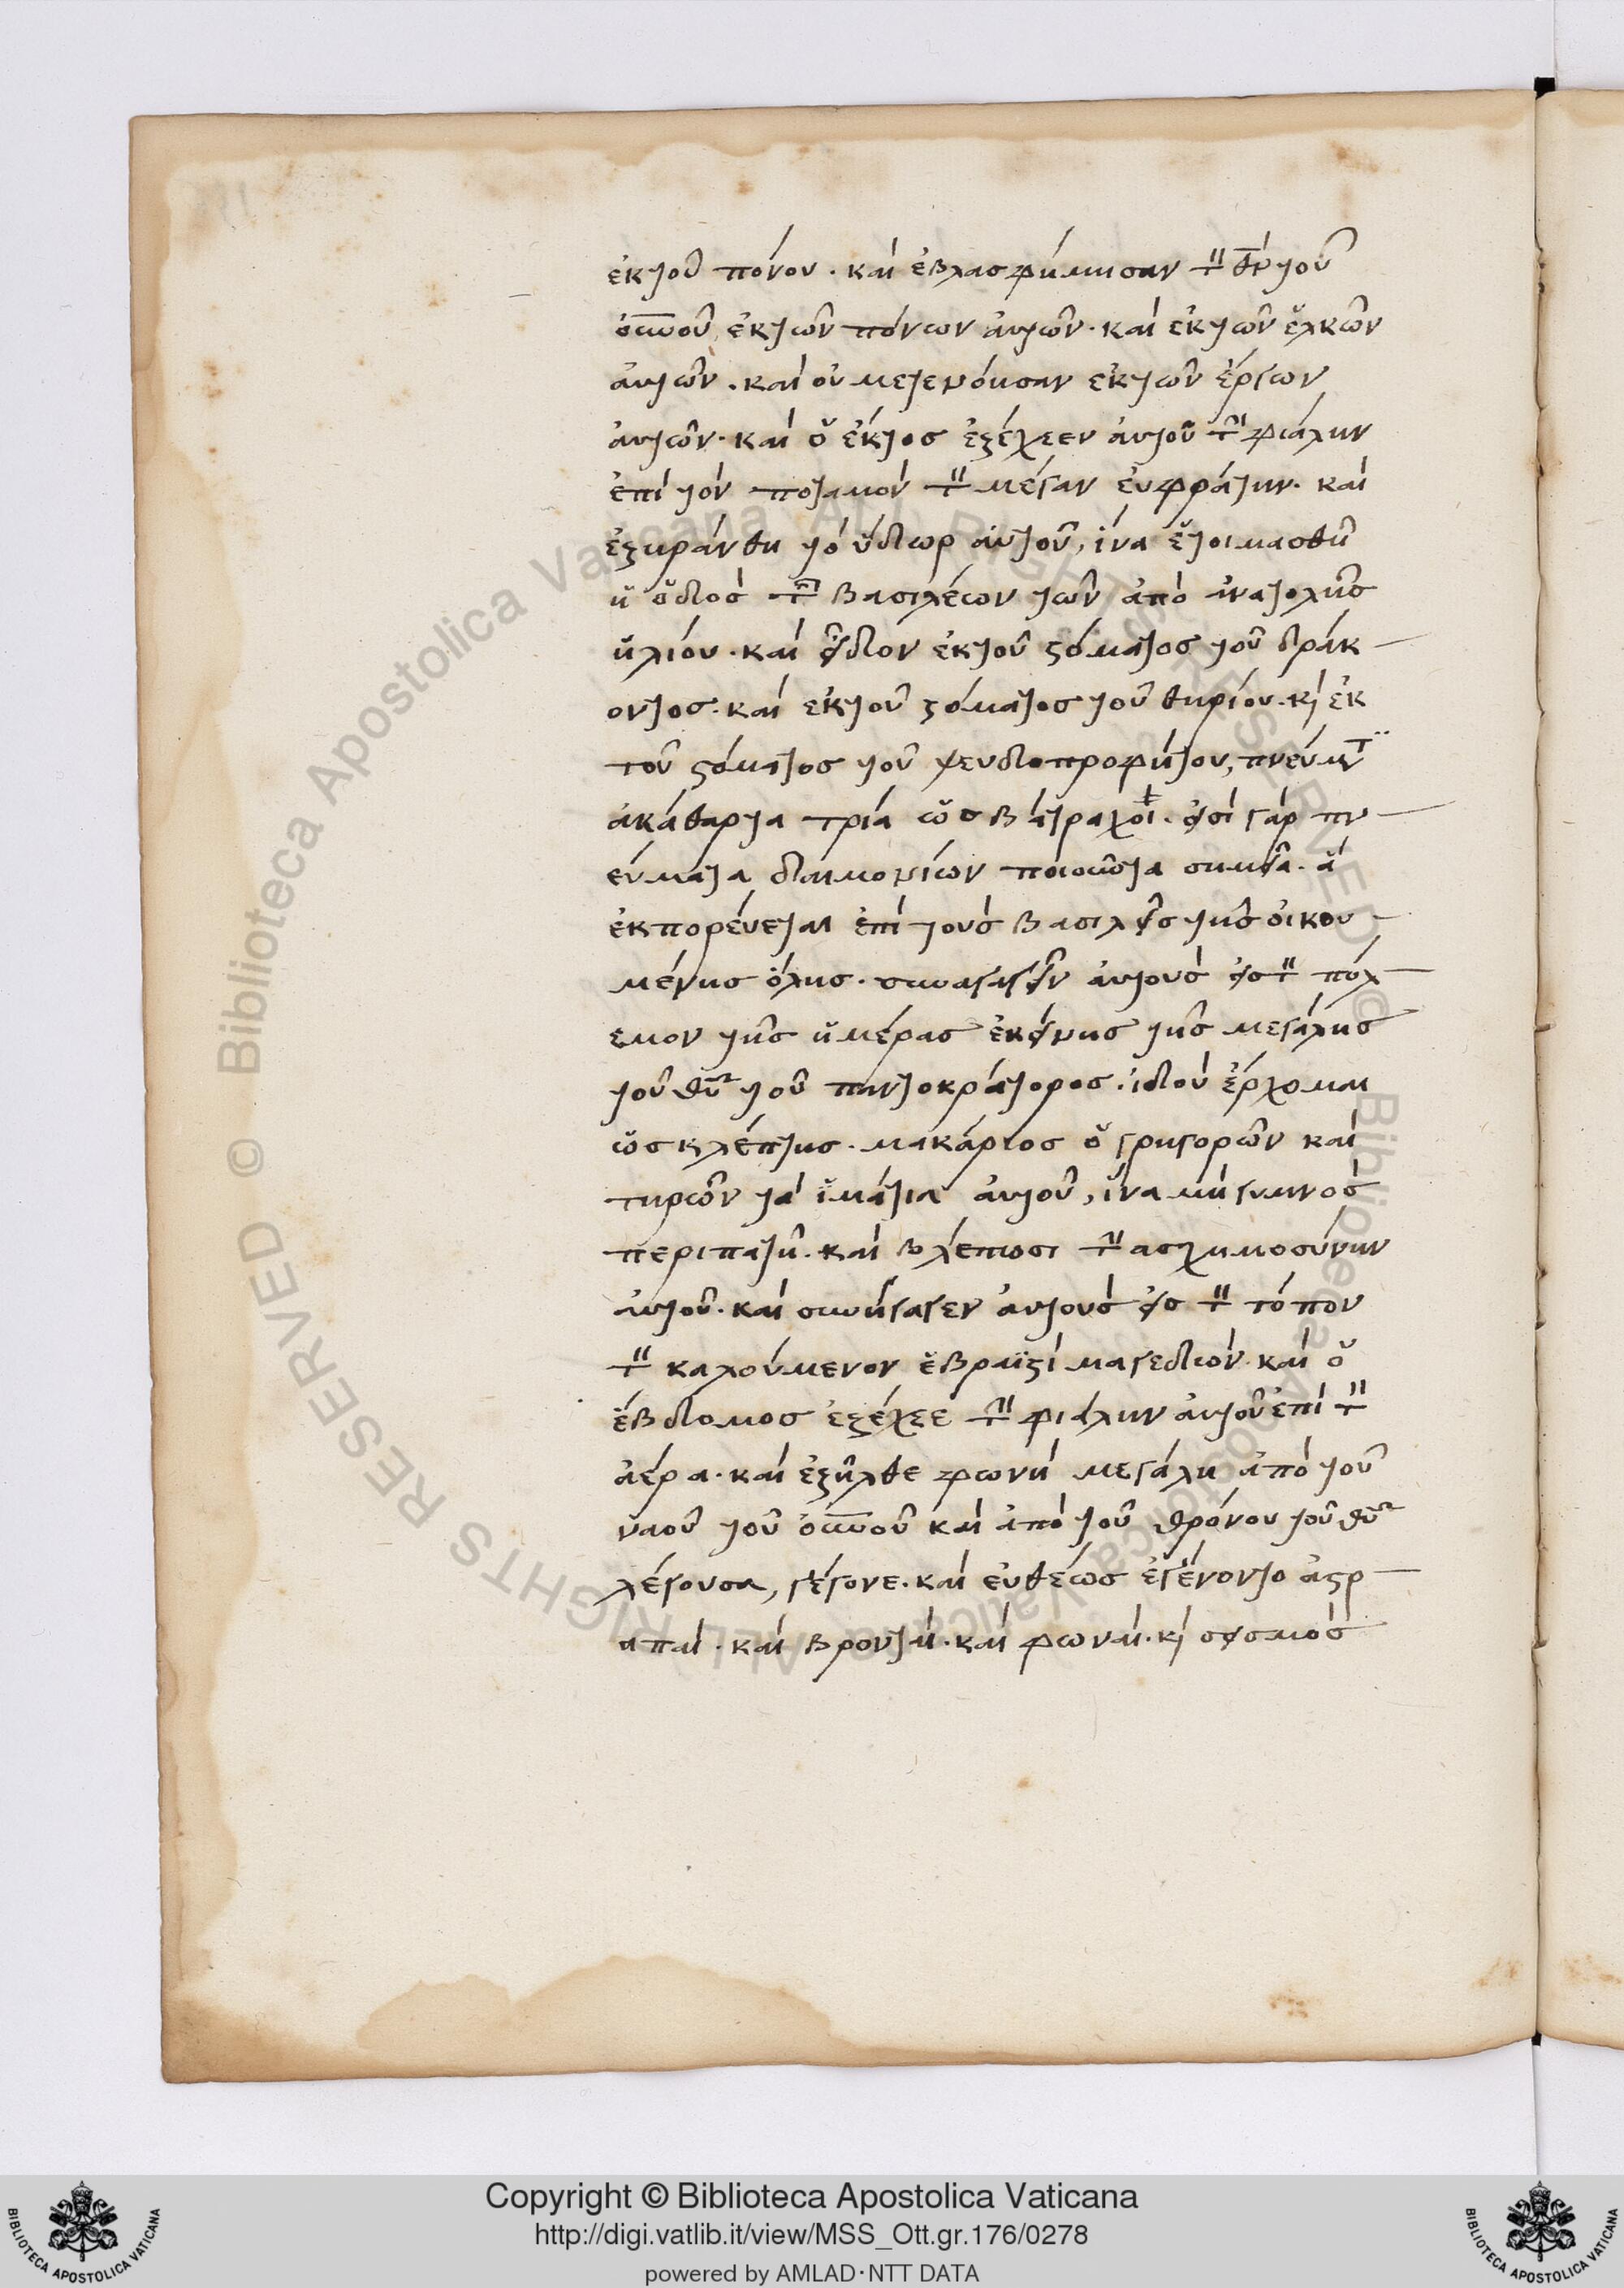 ἐκ τοῦ πόνου. καὶ ἐβλασφήμησαν τὸν θ̅ν̅ τοῦ
ο̅υ̅ν̅ο̅υ̅ ἐκ τῶν πόνων αὐτῶν. καὶ ἐκ τῶν ἑλκῶν
αὐτῶν. καὶ οὐ μετενόησαν ἐκ τῶν ἔργων
αὐτῶν. καὶ ὁ ἕκτος ἐξέχεεν αὐτοῦ τὴν φιάλην
ἐπὶ τὸν ποταμὸν τὸν μέγαν εὐφράτην. καὶ
ἐξηράνθη τὸ ὕδωρ αὐτοῦ, ἵνα ἑτοιμασθῆ
ἡ ὁδὸς τῶν βασιλέων τῶν ἀπὸ ἀνατολῆς
ἡλίου. καὶ εἶδον ἐκ τοῦ στόματος τοῦ δράκ
οντος. καὶ ἐκ τοῦ στόματος τοῦ θηρίου. κὶ ἐκ
τοῦ στόματος τοῦ ψευδοπροφήτου, πνεύμτ
ἀκάθαρτα τρία ὡς βάτραχοι. εἰσὶ γὰρ πν
εύματα δαιμονίων ποιοῦντα σημεῖα. ἃ
ἐκπορεύεται ἐπὶ τοὺς βασιλεῖς τῆς οἰκου
μένης ὅλης. συναγαγεῖν αὐτοὺς εἰς τὸν πόλ
εμον τῆς ἡμέρας ἐκείνης τῆς μεγάλης
τοῦ θυ τοῦ παντοκράτορος. ἰδοὺ ἔρχομαι
ὡς κλέπτης. μακάριος ὁ γρηγορῶν καὶ
τηρῶν τὰ ἱμάτια αὐτοῦ, ἵνα μὴ γυμνὸς
περιπατῆ. καὶ βλέπωσι τὴν ασχημοσύνην
αὐτοῦ. καὶ συνήγαγεν αὐτοὺς εἰς τὸν τόπον
τὸν καλούμενον ἑβραϊστὶ μαγεδών. καὶ ὁ
ἕβδομος ἐξέχεε τὴν φιάλην αὐτοῦ ἐπὶ τὸν
ἀέρα. καὶ ἐξῆλθε φωνὴ μεγάλη ἀπὸ τοῦ
ναοῦ τοῦ ο̅υ̅ν̅ο̅υ̅ καὶ ἀπὸ τοῦ θρόνου τοῦ θυ
λέγουσα, γέγονε. καὶ εὐθέως ἐγένοντο ἀστρ
απαὶ. καὶ βρονταὶ. καὶ φωναὶ. κὶ σεισμὸς
Copyright © Biblioteca Apostolica Vaticana
http://digi.vatlib.it/view/MSS_Ott.gr.176/0278
powered by AMLAD·NTT DATA